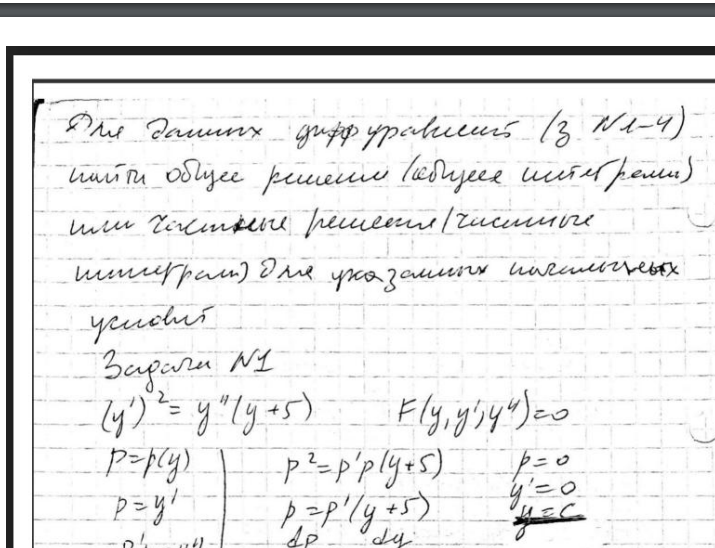 Для данных дифф уравнений (з N1-4)
найти общее решение (общие интегралы)
или частные решения (частные
интегралы) для указанных начальных
условий
Задача N1
(y')² = y"(y+5) F(y,y',y")=0
p=p(y) p²=p'p(y+5) p=0
p=y' p=p'(y+5) y'=0
y=c
dp dy